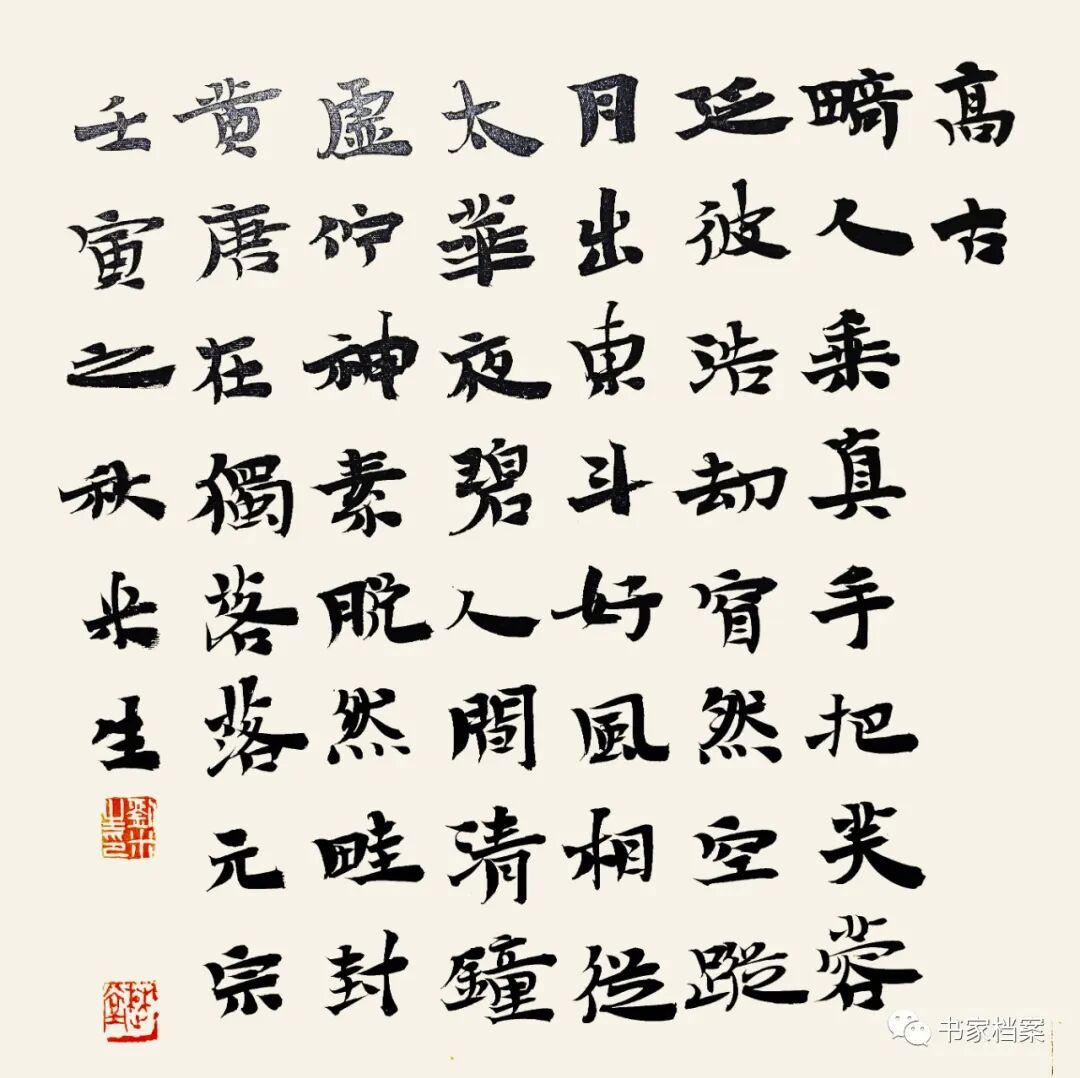 高古
畸人乘真手把芙蓉
泛彼浩劫窅然空蹤
月出東斗好風相從
太華夜碧人間清鐘
虛佇神素脫然畦封
黃唐在獨落落元宗
壬寅之秋米生
劉米生印
书家档案